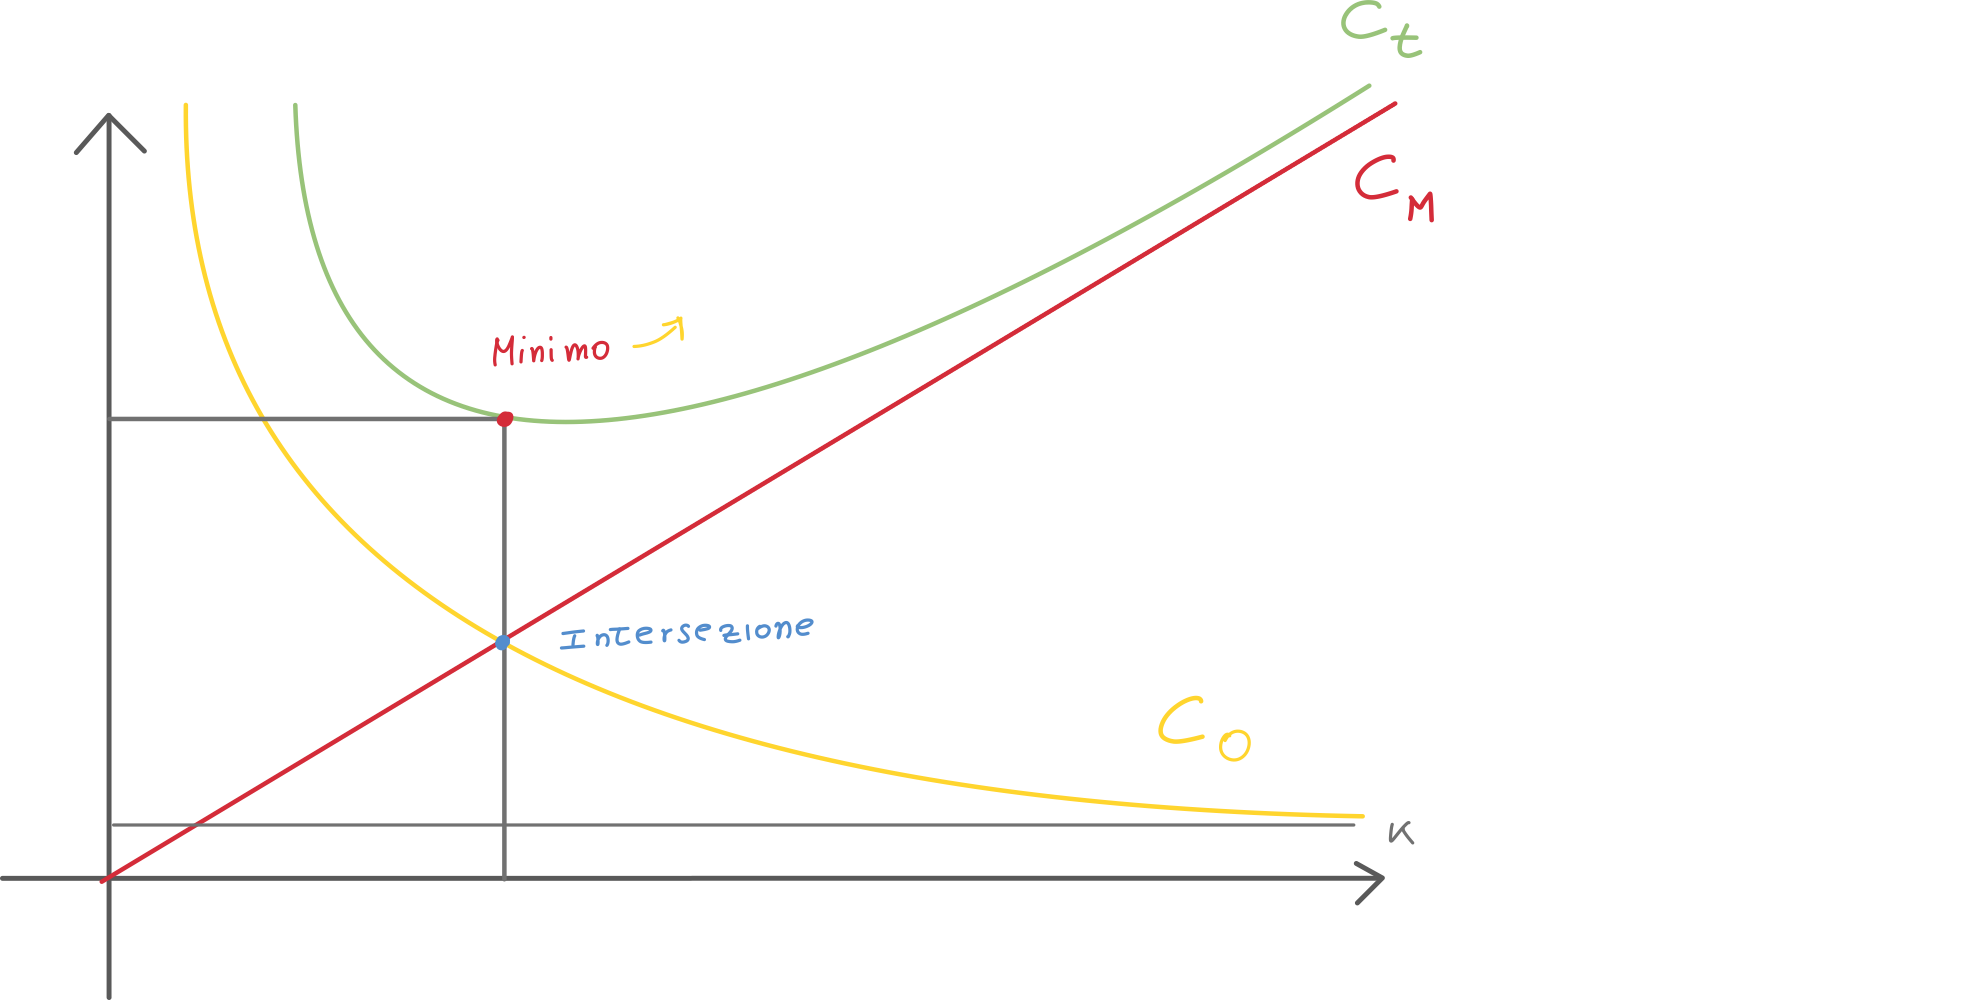 Ct
CM
Minimo
Intersezione
CO
K